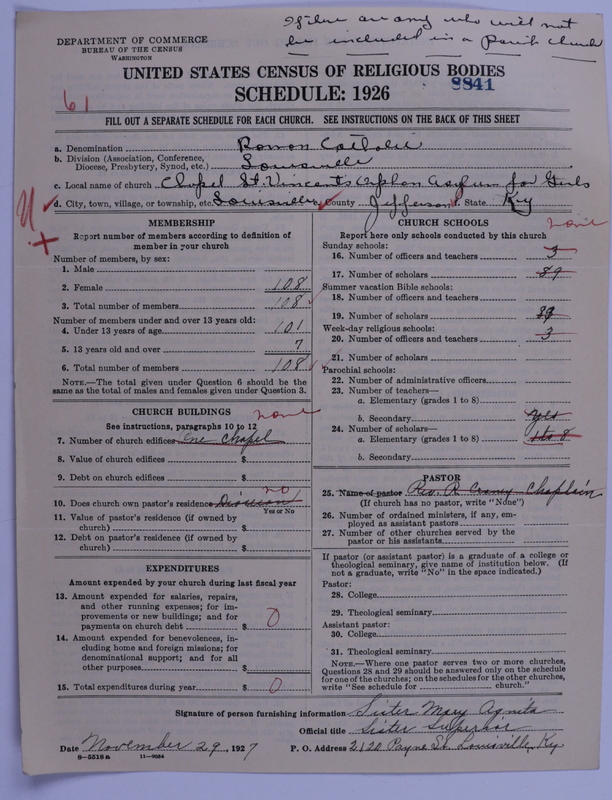 If there are any who will not
be included in a Parish church
DEPARTMENT OF COMMERCE
BUREAU OF THE CENSUS
WASHINGTON
UNITED STATES CENSUS OF RELIGIOUS BODIES
SCHEDULE: 1926
8841
61
FILL OUT A SEPARATE SCHEDULE FOR EACH CHURCH. SEE INSTRUCTIONS ON THE BACK OF THIS SHEET
a. Denomination Roman Catholic
b. Division (Association, Conference, Diocese, Presbytery, Synod, etc.) Louisville
c. Local name of church Chapel St. Vincents Orphan Asylum for Girls
d. City, town, village, or township, etc. Louisville County Jefferson State Ky
MEMBERSHIP
Report number of members according to definition of
member in your church
Number of members, by sex:
1. Male
2. Female 108
3. Total number of members 108
Number of members under and over 13 years old:
4. Under 13 years of age 101
5. 13 years old and over 7
6. Total number of members 108
NOTE.—The total given under Question 6 should be the
same as the total of males and females given under Question 3.
CHURCH BUILDINGS
none
See instructions, paragraphs 10 to 12
7. Number of church edifices One Chapel
8. Value of church edifices $
9. Debt on church edifices $
no
10. Does church own pastor's residence
Yes or No
11. Value of pastor's residence (if owned by
church) $
12. Debt on pastor's residence (if owned by
church) $
EXPENDITURES
Amount expended by your church during last fiscal year
13. Amount expended for salaries, repairs,
and other running expenses; for im-
provements or new buildings; and for
payments on church debt $ 0
14. Amount expended for benevolences, in-
cluding home and foreign missions; for
denominational support; and for all
other purposes $
15. Total expenditures during year $ 0
CHURCH SCHOOLS
none
Report here only schools conducted by this church
Sunday schools:
16. Number of officers and teachers 3
17. Number of scholars 89
Summer vacation Bible schools:
18. Number of officers and teachers
19. Number of scholars
Week-day religious schools:
20. Number of officers and teachers 3
21. Number of scholars
Parochial schools:
22. Number of administrative officers
23. Number of teachers—
a. Elementary (grades 1 to 8)
b. Secondary yes
24. Number of scholars—
a. Elementary (grades 1 to 8) 1 to 8
b. Secondary
PASTOR
25. Name of pastor Rev. R. Chaplain
(If church has no pastor, write "None")
26. Number of ordained ministers, if any, em-
ployed as assistant pastors
27. Number of other churches served by the
pastor or his assistants
If pastor (or assistant pastor) is a graduate of a college or
theological seminary, give name of institution below. (If
not a graduate, write "No" in the space indicated.)
Pastor:
28. College
29. Theological seminary
Assistant pastor:
30. College
31. Theological seminary
NOTE.—Where one pastor serves two or more churches,
Questions 28 and 29 should be answered only on the schedule
for one of the churches; on the schedules for the other churches,
write "See schedule for church."
Signature of person furnishing information Sister Mary Agnita
Official title Sister Superior
Date November 29, 1927 P. O. Address 2120 Payne St. Louisville, Ky
8-5518a 11-9084